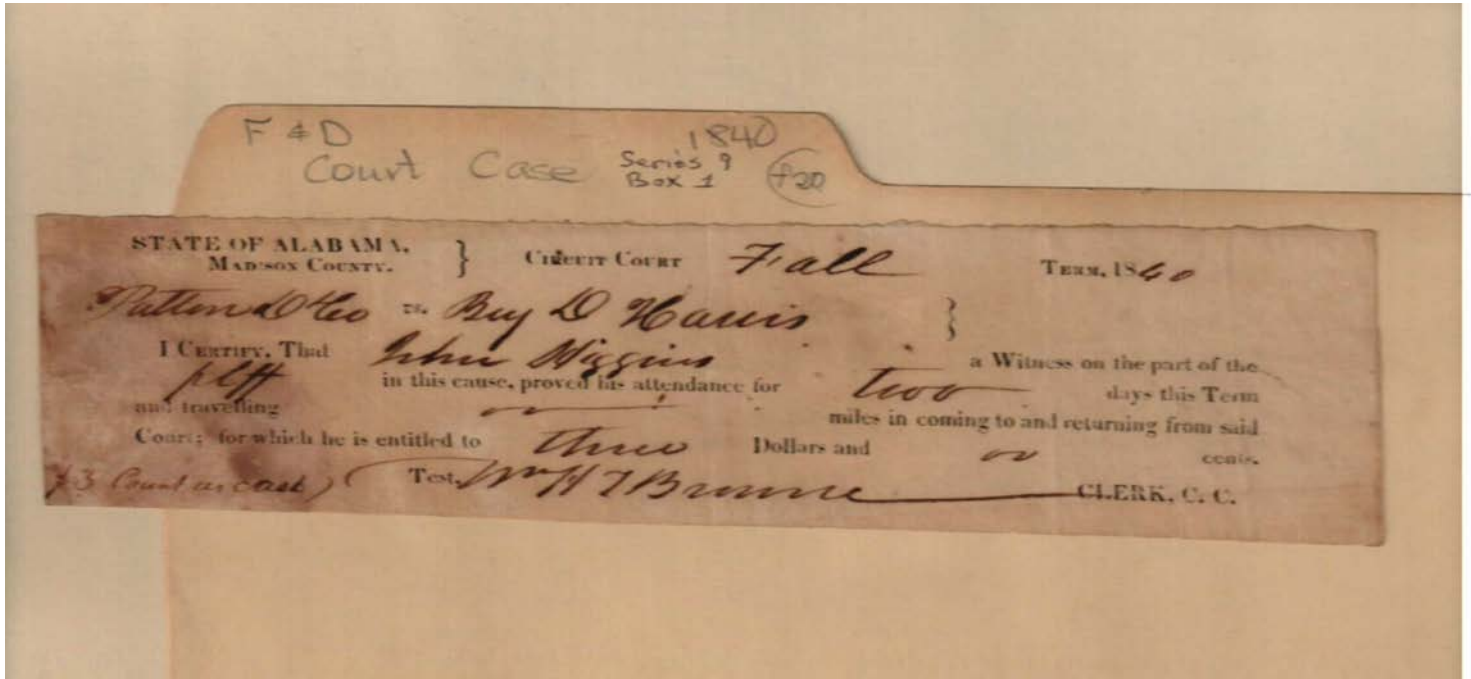 F & D 1840
Court Case Series 9
Box 1 f20
STATE OF ALABAMA, } CIRCUIT COURT Fall TERM, 1840
MADISON COUNTY.
Patton D & Co vs. Benj D Harris }
I CERTIFY, That John Higgins a Witness on the part of the
plff in this cause, proved his attendance for two days this Term
and travelling miles in coming to and returning from said
Court; for which he is entitled to three Dollars and cents.
$3 Count as cash) Test, Wm H T Browne CLERK, C. C.